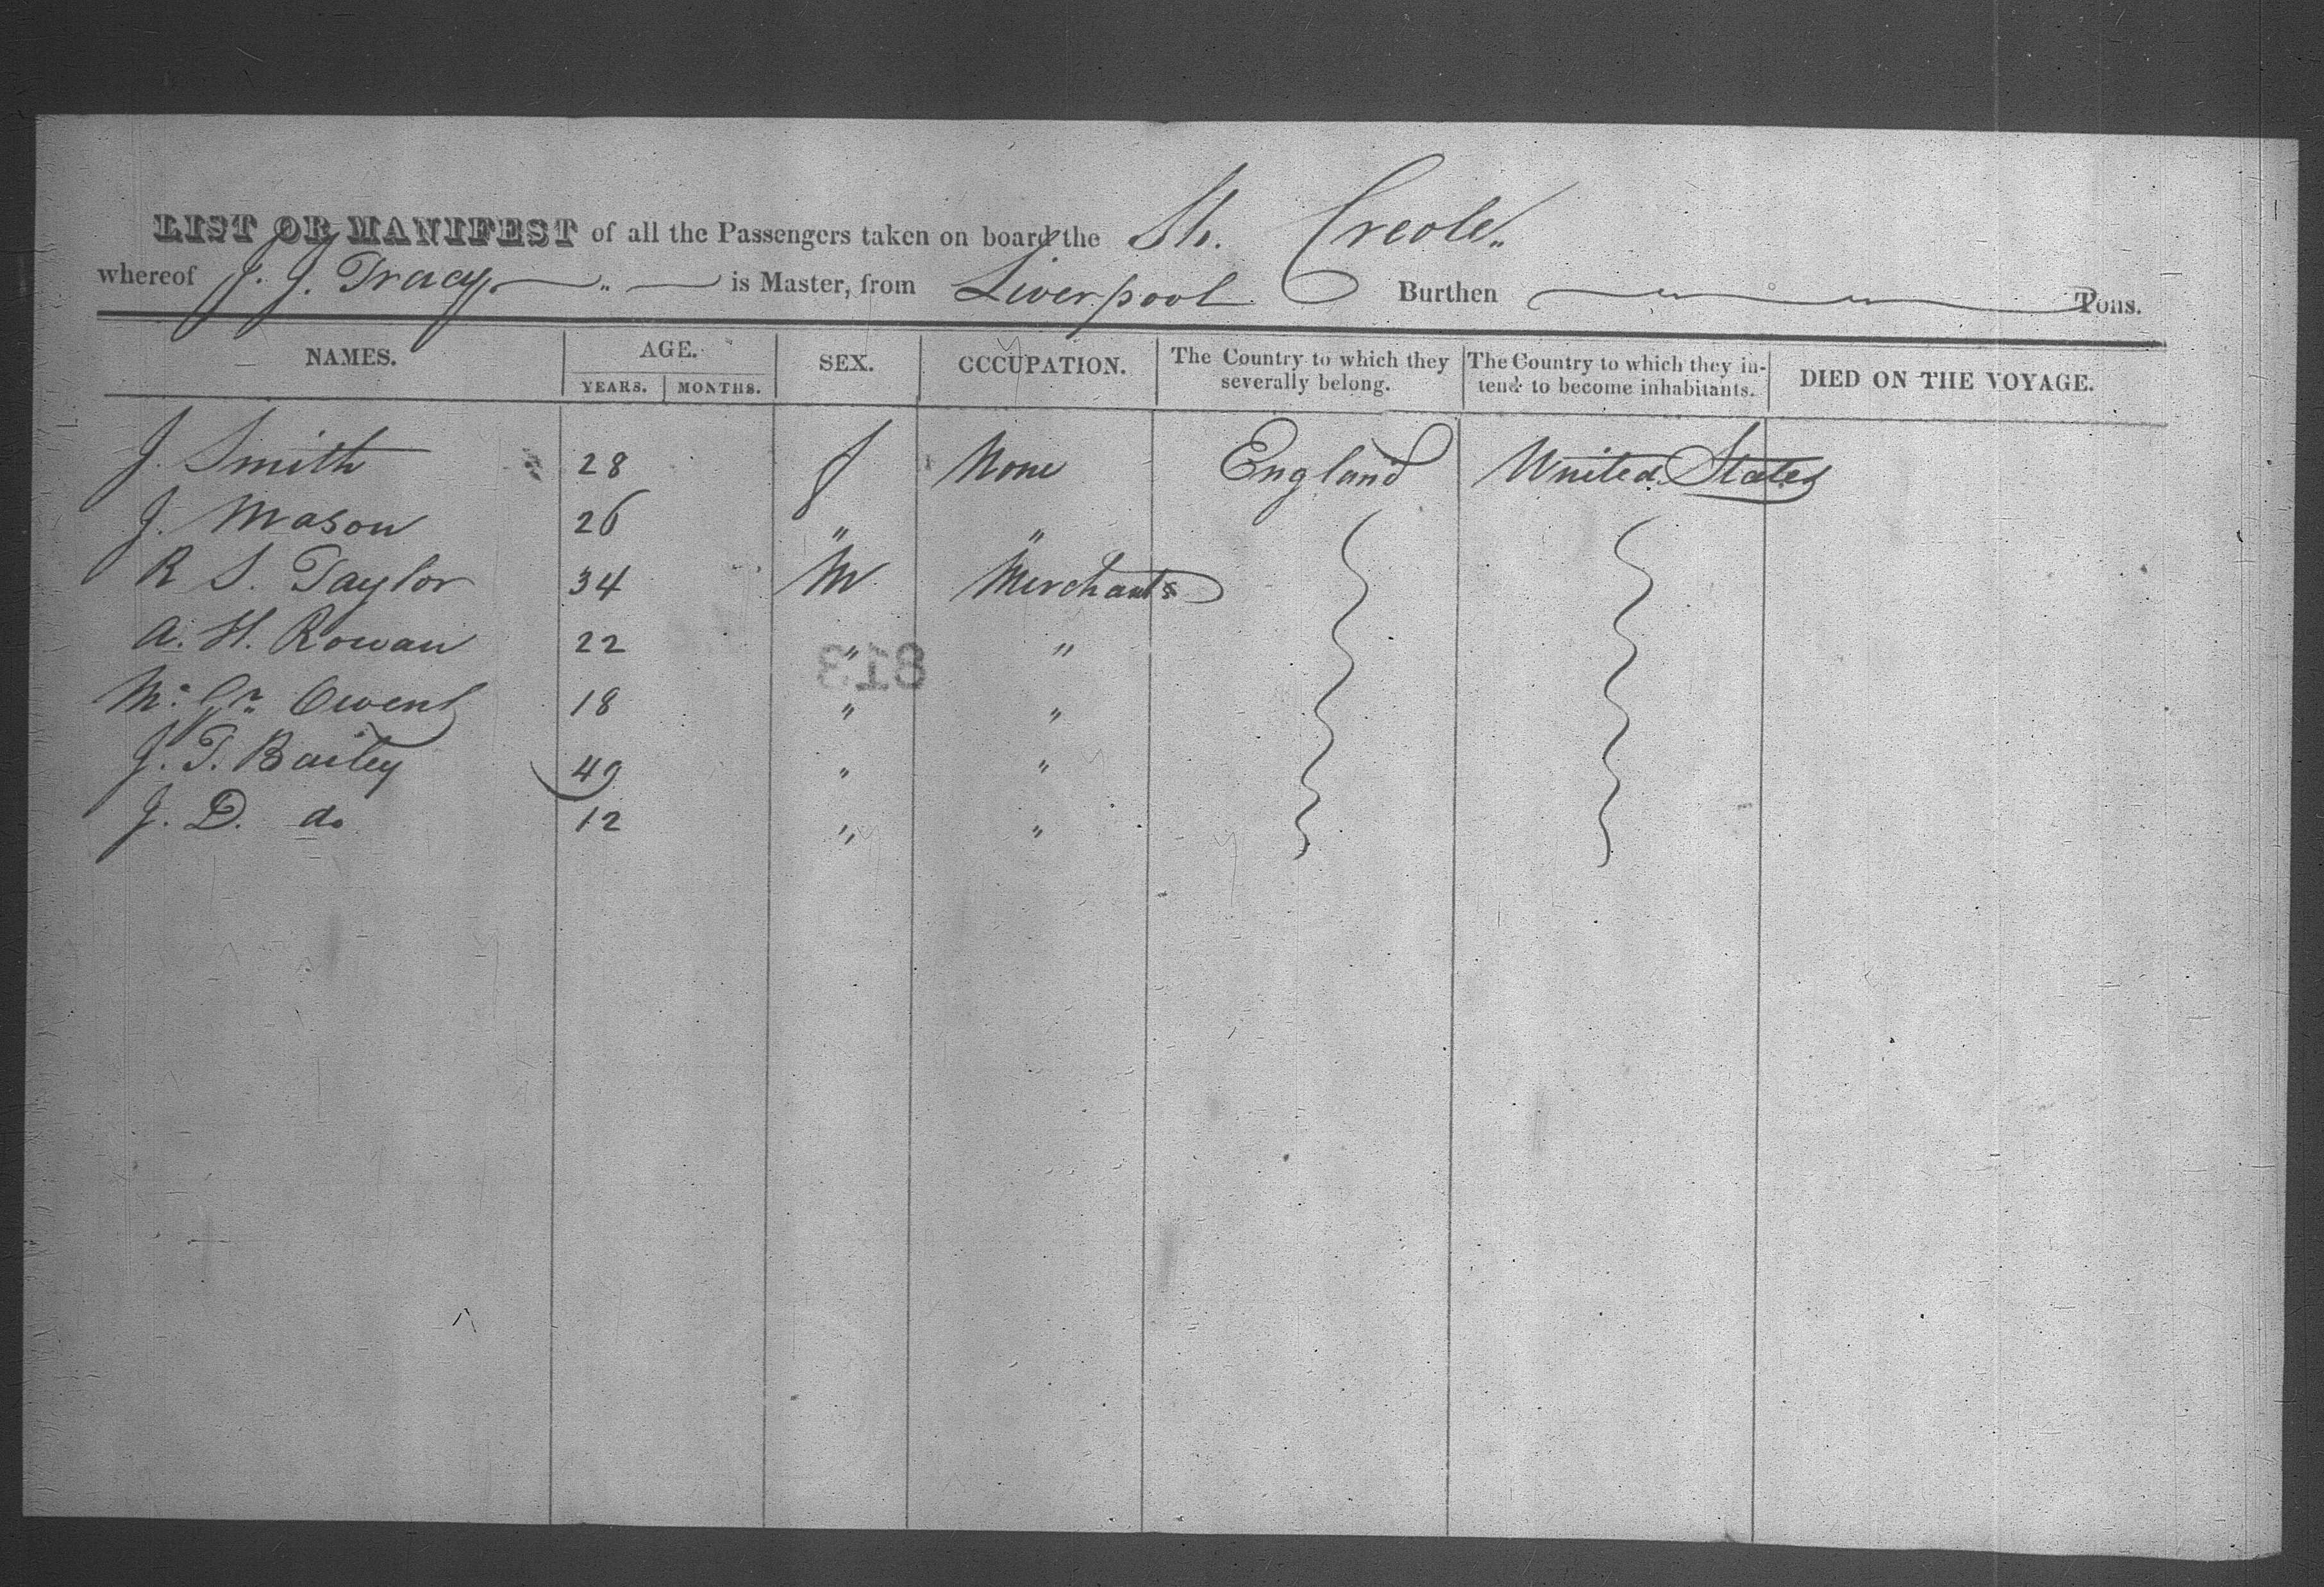 LIST OR MANIFEST of all the Passengers taken on board the Sh. Creole
whereof J. J. Tracy is Master, from Liverpool Burthen Tons.
NAMES. AGE. SEX. OCCUPATION. The Country to which they severally belong. The Country to which they intend to become inhabitants. DIED ON THE VOYAGE.
YEARS. MONTHS.
J. Smith 28 f None England United States
J. Mason 26 " "
R S. Taylor 34 M Merchants
A. H. Rowan 22 " "
Owens 18 " "
J. T. Bailey 49 " "
J. D. do 12 " "
813